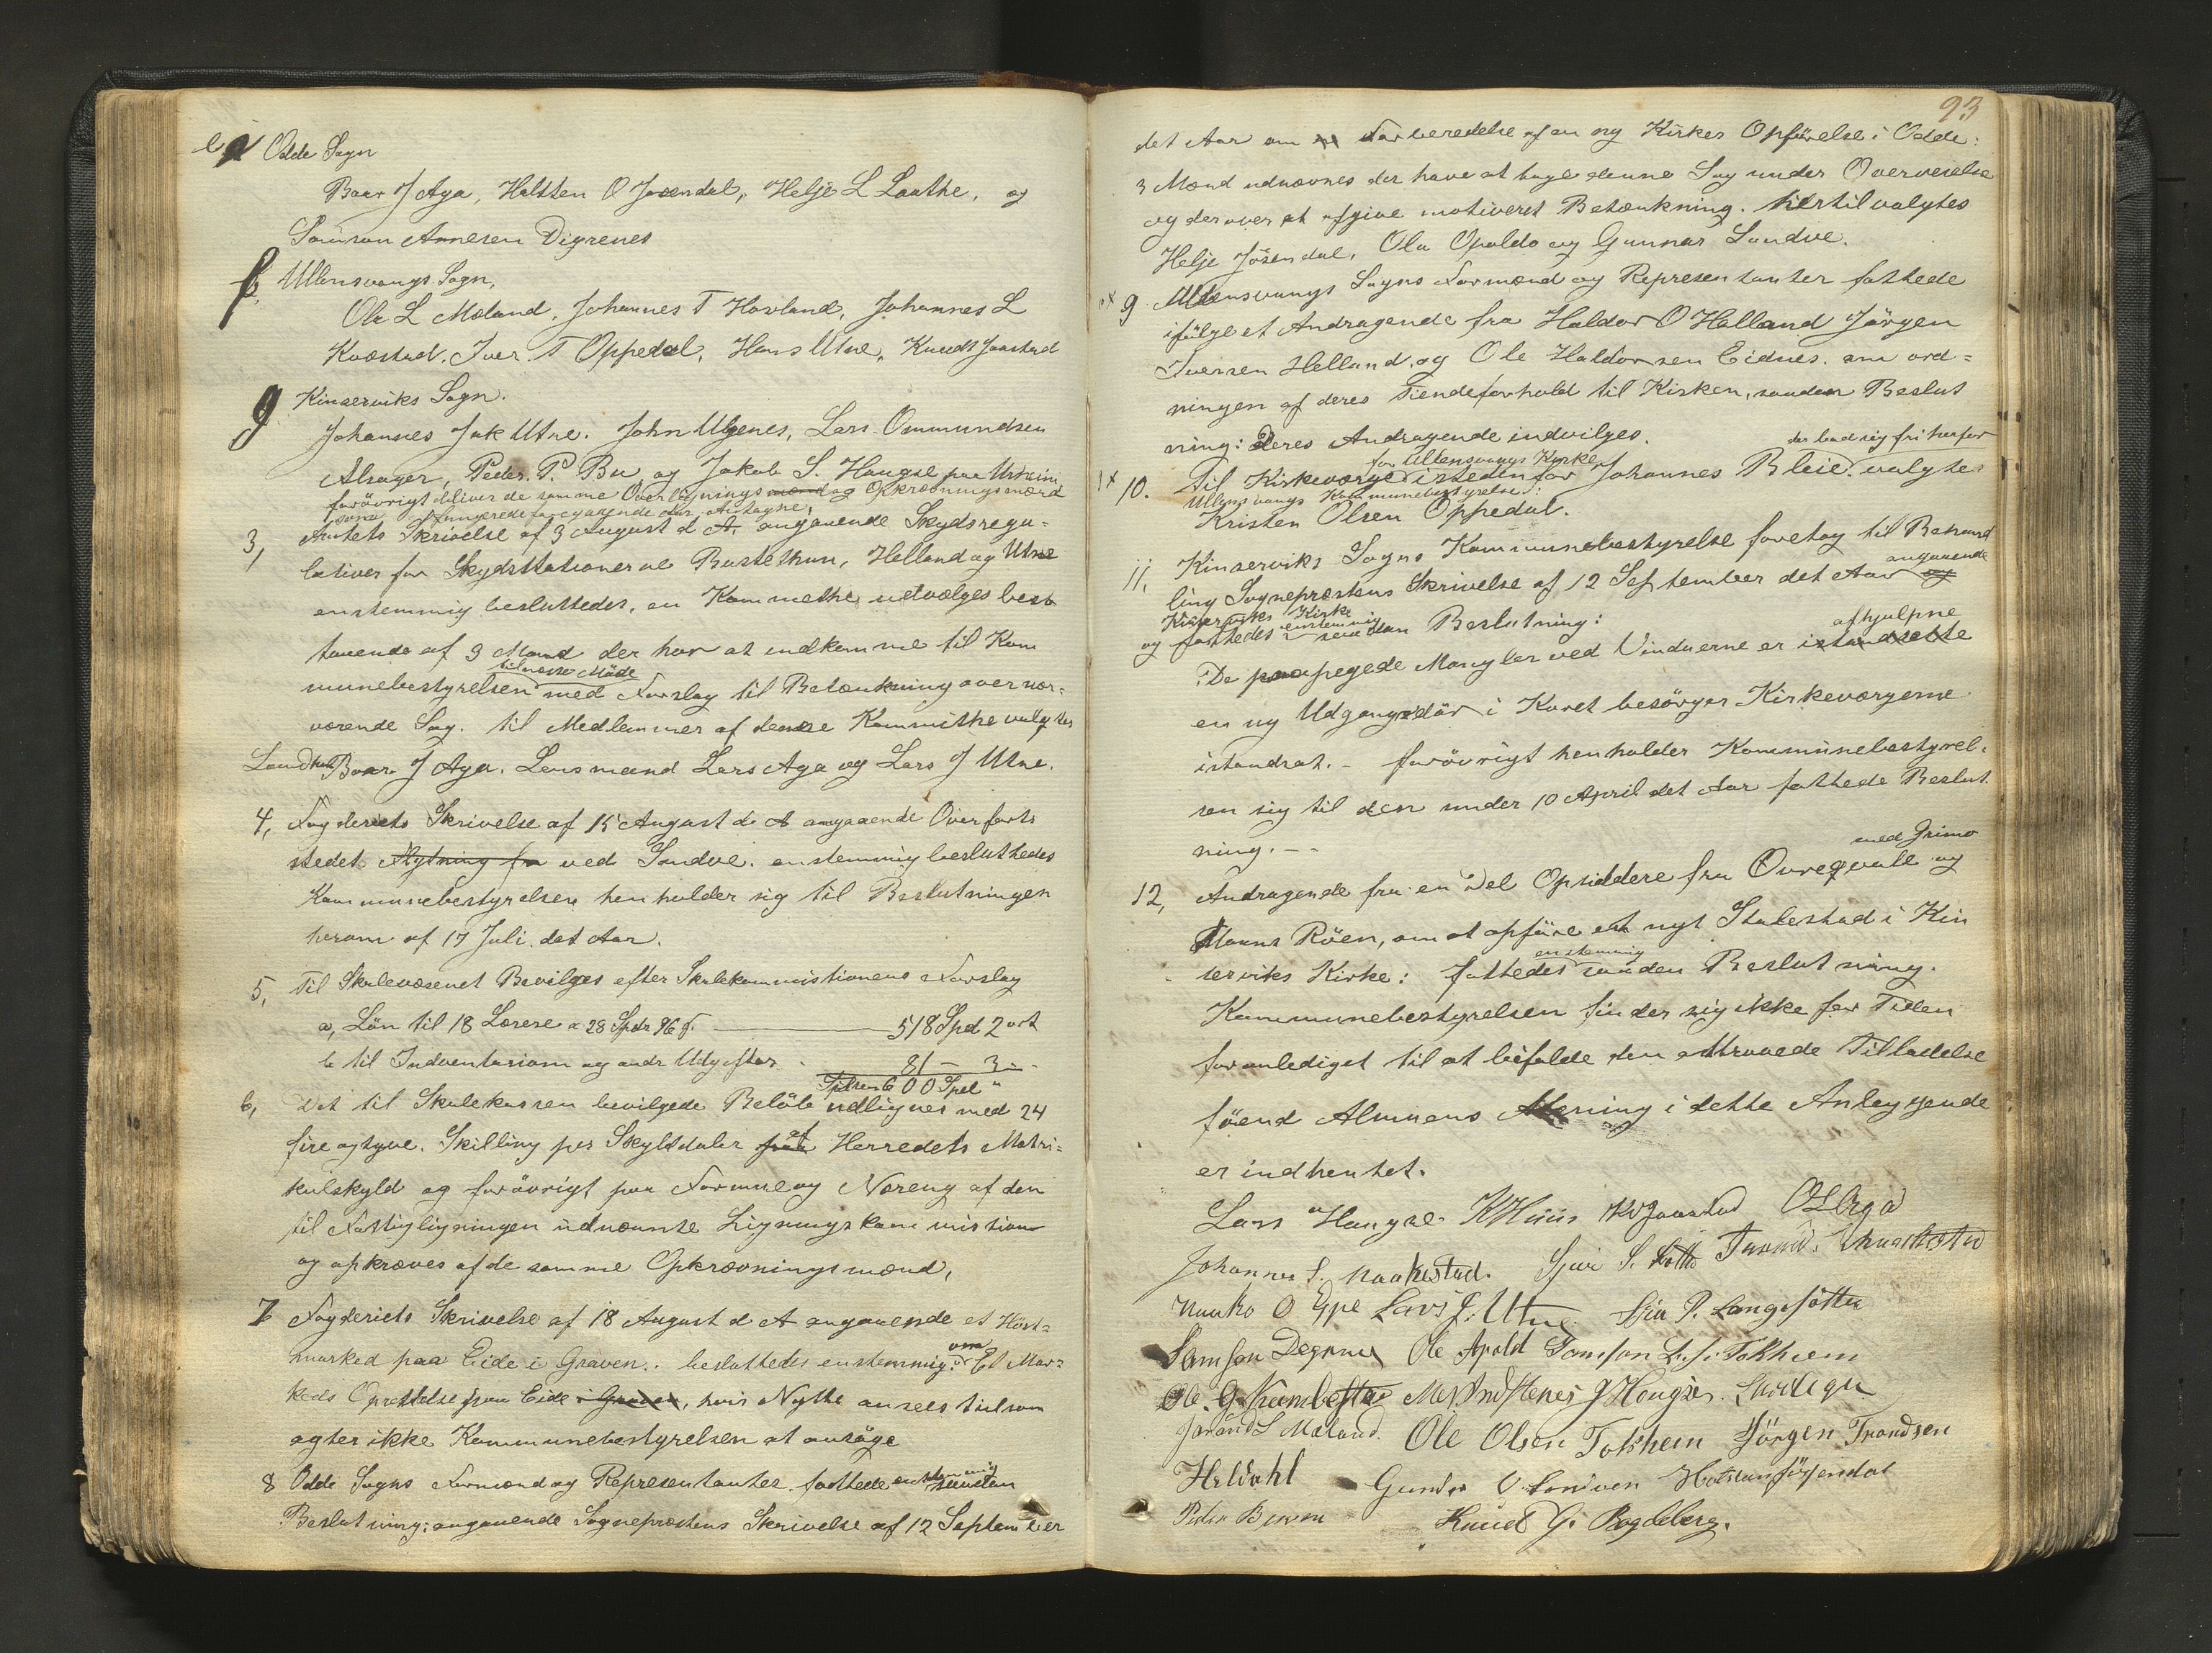 e, Odde Sogn
Baar J Aga, Halsten O Jøsendal, Helje L Laathe, og
Samson Arnesen Digrenes
f, Ullensvangs Sogn,
Ole L Mæland, Johannes T Hovland, Johannes L
Kvæstad. Iver T Oppedal, Hans Utne, Knudt Jaastad
g Kinserviks Sogn.
Johannes Jak Utne. John Ulgenes, Lars Ommundsen
Alsager, Peder P. Bu og Jakob S. Haugse paa Utheim
forövrigt bliver de samme Overligningsmænd og Opkrævningsmænd
som fungerede foregaaende Aar antagne,
3, Amtets Skrivelse af 3 August d A. angaaende Skydsregu=
lativer for Skydsstationerne Bustethun, Helland og Utne
enstemmig besluttedes, en Kommethe udvælges best
taaende af 3 Mænd der har at indkomme til Kom
til næste Möde
munebestyrelsen med Forslag til Betænkning over nær=
værende Sag. til Medlemmer af denne Kommithe valgtes
Landh Baar J Aga. Lensmand Lars Aga og Lars J Utne.
4, Fogderiets Skrivelse af 15 August d. A angaaende Overfarts
stedets Flytning fra ved Sandve. enstemmig besluttedes
Kommunebestyrelsen henholder sig til Beslutningen
herom af 17 Juli det Aar.
5, Til Skolevæsenet Bevilges efter Skolekommistionens Forslag
a, Lön til 18 Lærere a 28 Spdr 96 s. 518 Spd 2 ort
b til Indventarium og andr Udgifter 81 – 3 –
Tilsam 600 Spd "
6, Det til Skolekassen bevilgede Belöb udlignes med 24
fire og tyve. Skilling per Skyldaler paa af Herredets Matri=
kulskyld og forövrigt paa Formue og Næreng af den
til Fattigligningen udnævnte Ligningskommistion
og opkræves af de samme Opkrævningsmænd,
7 Fogderiets Skrivelse af 18 August d A angaaende et Höst=
marked paa Eide i Graven. besluttedes enstemmig: om Et Mar=
keds Oprettelse paa Eide i Graven, hvis Nytte ansees tvilsom
agter ikke Kommunebestyrelsen at ansöge
8 Odde Sogns Formænd og Representanter fattede enstemmig saadan
Beslutning: angaaende Sogneprestens Skrivelse af 12 September
93
det Aar om Forberedelse af en ny Kirkes Opförelse i Odde:
3 Mænd udnævnes der have at tage denne Sag under Overveielse
og derover at afgive motiveret Betænkning. hertil valgtes
Helje Jösendal, Ola Opaldo og Gunnar Sandve.
9. Ullensvangs Sogns Formænd og Representanter fattede
ifölge et Andragende fra Haldor O Helland Jörgen
Iversen Helland, og Ole Haldorsen Eidnes. om ord=
ningen af deres Tiendeforhold til Kirken, saadan Beslut
ning: Deres Andragende indvilges.
for Ullensvangs Kirke der bad sig fri herfor
10. Til Kirkeværge istedenfor Johannes Bleie valgte
Ullensvangs Kommunebestyrelse:
Kristen Olsen Oppedal.
11, Kinserviks Sogns Kommunebestyrelse foretog til Behand
ling Sogneprestens Skrivelse af 12 September det Aar og angaaende
Kinserviks Kirke
og fattedes enstemmig saadan Beslutning:
De paapegede Mangler ved Vinduerne er istandsatte afhjulpne
en ny Udgangsdör i Koret besörger Kirkeværgerne
istandsat. – forövrigt henholder Kommunebestyrel=
sen sig til den under 10 April det Aar fattede Beslut
ning. –
med Grimo
12, Andragende fra en Del Opsiddere fra Qvreqvale og
Maans Röen, om at opföre et nyt Stalestad i Kin
serviks Kirke: fattedes enstemmig saadan Beslutning.
Kommunebestyrelsen finder sig ikke for Tiden
foranlediget til at befalde den attraaede Tilladelse
föend Almuens Mening i dette Anleggende
er indhentet.
Lars Haugse. K Huus K Jaastad O L Aga
Johannes S. Maakestad. Sjur S. Lotte
O Eppe Lars J. Utne P. Langesötter
Samson Degrenes Ole Apold Samson L. Tokheim
Ole G. J Haugse.
S Mæland. Ole Olsen Tokheim Jörgen Trondsen
H Wahl Gunder O Sandven Jösendal
Peder Knud G. Bogdeberg.